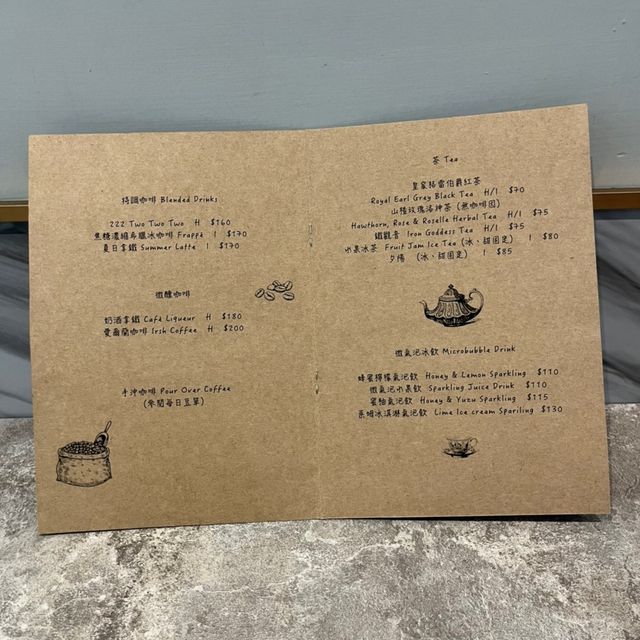 特調咖啡 Blended Drinks
222 Two Two Two H $160
焦糖濃縮烏龍冰咖啡 Frappé I $170
夏日拿鐵 Summer Latte I $170
微醺咖啡
奶酒拿鐵 Café Liqueur H $180
愛爾蘭咖啡 Irsh Coffee H $200
手沖咖啡 Pour Over Coffee
(參閱每日豆單)
茶 Tea
皇家格雷伯爵紅茶
Royal Earl Gray Black Tea H/I $70
山楂玫瑰洛神茶 (無咖啡因)
Hawthorn, Rose & Roselle Herbal Tea H/I $75
鐵觀音 Iron Goddess Tea H/I $75
水果冰茶 Fruit Jam Ice Tea (冰、甜固定) I $80
夕陽 (冰、甜固定) I $85
微氣泡冰飲 Microbubble Drink
蜂蜜檸檬氣泡飲 Honey & Lemon Sparkling $110
微氣泡水果飲 Sparkling Juice Drink $110
蜜柚氣泡飲 Honey & Yuzu Sparkling $115
萊姆冰淇淋氣泡飲 Lime Ice cream Spariling $130